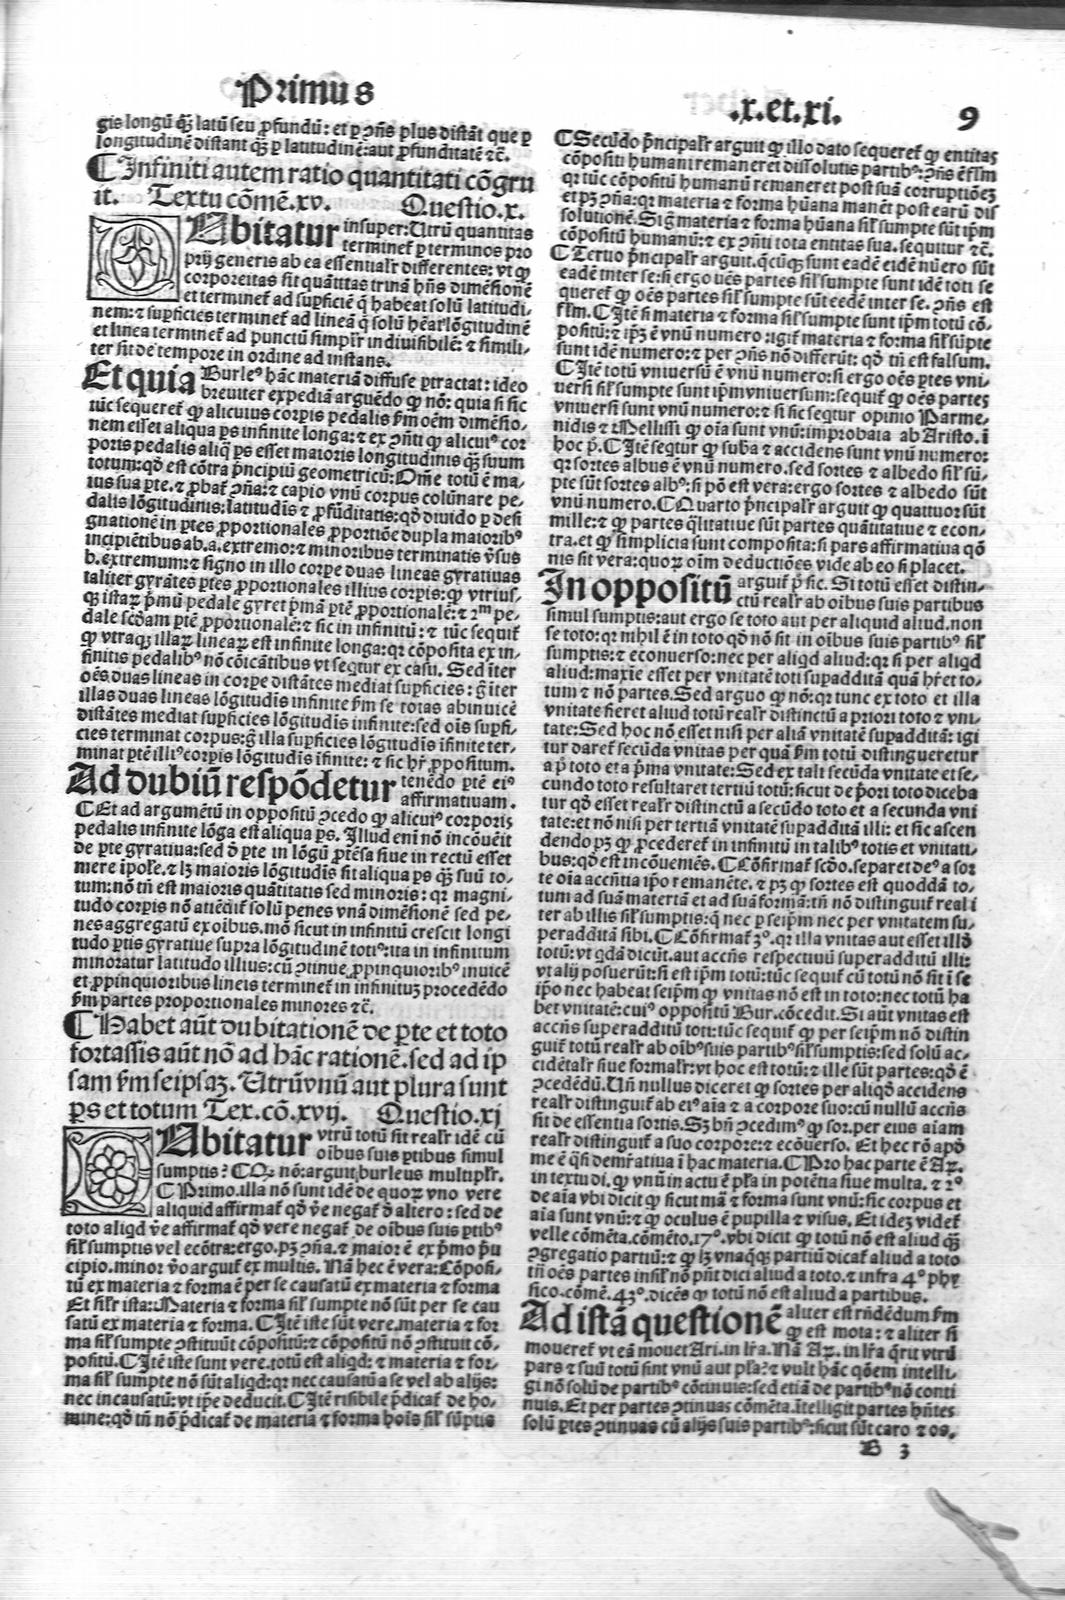 Primus
.x.et.xi.
9
gis longũ q̃ȝ latũ seu ꝓfundũ: et ꝑ ꝯñs plus distãt que ꝑ
longitudinẽ distant q̃ȝ ꝑ latitudinẽ: aut ꝓfunditatẽ ⁊c̃.
¶ Infiniti autem ratio quantitati cõgru
it. Textu cõmẽ.xv. Questio.x.
DUbitatur insuper: Utrũ quantitas
terminet̃ ꝑ terminos pro
prij generis ab ea essentialr̃ differentes: vt ꝙ
corporeitas sit quãtitas trinã hñs dimẽsionẽ
et terminet̃ ad supficiẽ q̃ habeat solũ latitudi-
nem: ⁊ supficies terminet̃ ad lineã q̃ solũ hẽat lõgitudinẽ
et linea terminet̃ ad punctũ simplr̃ indiuisibilẽ: ⁊ simili-
ter sit de tempore in ordine ad instans.
Et quia Burleꝰ hãc materiã diffuse ꝑtractat: ideo
breuiter expediã arguẽdo ꝙ nõ: quia si sic
tũc sequeret̃ ꝙ alicuius corꝑis pedalis ẜm oẽm dimẽsio-
nem esset aliqua ꝑs infinite longa: ⁊ ex ꝯñti ꝙ alicuiꝰ cor
poris pedalis aliq̃ ꝑs esset maioris longitudinis q̃ȝ suum
totum: qd̃ est cõtra ṗncipiũ geometricũ: Om̃e totũ ẽ ma-
ius sua ꝑte. ⁊ ꝓbat̃ ꝯña: ⁊ capio vnũ corpus colũnare pe-
dalis lõgitudinis: latitudis ⁊ ꝓfũditatis: qd̃ diuido ꝑ desi
gnationẽ in ꝑtes ꝓportionales ꝓportiõe dupla maioribꝰ
incipiẽtibus ab.a.extremo: ⁊ minoribus terminatis ṽsus
b.extremum: ⁊ signo in illo corꝑe duas lineas gyratiuas
taliter gyrãtes ꝑtes ꝓportionales illius corꝑis: ꝙ vtrius-
q̃ istaꝝ ṗmũ pedale gyret ṗmã ꝑtẽ ꝓportionalẽ: ⁊ 2ᵐ pe-
dale scd̃am ꝑtẽ ꝓportionalẽ: ⁊ sic in infinitũ: ⁊ tũc sequit̃
ꝙ vtraqȝ illaꝝ lineaꝝ est infinite longa: qr̃ cõposita ex in-
finitis pedalibꝰ nõ cõicãtibus vt seqtur ex casu. Sed iter
oẽs duas lineas in corꝑe distãtes mediat supficies: g̃ iter
illas duas lineas lõgitudis infinite ẜm se totas abinuicẽ
distãtes mediat supficies lõgitudis infinite: sed oĩs supfi-
cies terminat corpus: g̃ illa supficies lõgitudis ĩfinite ter-
minat ꝑtẽ illiꝰ corꝑis lõgitudis ĩfinite: ⁊ sic hr̃ ꝓpositum.
Ad dubiũ respõdetur tenẽdo ꝑtẽ eiꝰ
affirmatiuam.
¶ Et ad argumẽtũ in oppositũ ꝯcedo ꝙ alicuiꝰ corꝑis
pedalis infinite lõga est aliqua ꝑs. Illud enĩ nõ incõuẽit
de ꝑte gyratiua: sed d̃ ꝑte in lõgũ ꝓtẽsa siue in rectũ esset
mere ipoſe. ⁊ lȝ maioris lõgitudis sit aliqua ꝑs q̃ȝ suũ to-
tum: nõ tñ est maioris quãtitatis sed minoris: qr̃ magni-
tudo corꝑis nõ atẽdit̃ solũ penes vnã dimẽsionẽ sed pe-
nes aggregatũ ex oĩbus. mõ sicut in infinitũ crescit longi
tudo ꝑtis gyratiue supra lõgitudinẽ totiꝰ: ita in infinitum
minoratur latitudo illius: cũ ꝯtinue ꝓpinquioribꝰ inuicẽ
et ꝓpinquioribus lineis terminet̃ in infinitũȝ procedẽdo
ẜm partes proportionales minores ⁊c̃.
¶ Habet aũt dubitationẽ de ꝑte et toto
fortassis aũt nõ ad hãc rationẽ. sed ad ip
sam ẜm seipsaȝ. Utrũ vnũ aut plura sunt
ꝑs et totum Tex.cõ.xvij. Questio.xj
DUbitatur vtrũ totũ sit realr̃ idẽ cũ
oĩbus suis ꝑtibus simul
sumptis: ¶ Q nõ: arguit burleus multiplr̃.
¶ Primo. illa nõ sunt idẽ de quoꝝ vno vere
aliquid affirmat̃ qd̃ ṽe negat̃ d̃ altero: sed de
toto aliqd ṽe affirmat̃ qd̃ vere negat̃ de oĩbus suis ꝑtibꝰ
sil̃ sumptis vel ecõtra: ergo. pȝ ꝯña. ⁊ maior ẽ ex ṗmo ṗn
cipio. minor ṽo arguit̃ ex multis. Nã hec ẽ vera: Cõposi-
tũ ex materia ⁊ forma ẽ per se causatũ ex materia ⁊ forma
Et sil̃r ista: Materia ⁊ forma sil̃ sumpte nõ sũt per se cau
satũ ex materia ⁊ forma. ¶ Itẽ iste sũt vere. materia ⁊ for
ma sil̃ sumpte ꝯstituũt cõpositũ: ⁊ cõpositũ nõ ꝯstituit cõ-
positũ. ¶ Itẽ iste sunt vere. totũ est aliqd: ⁊ materia ⁊ for-
ma sil̃ sumpte nõ sũt aliqd: qr̃ nec causatũ a se vel ab alijs:
nec incausatũ: vt ipse deducit. ¶ Itẽ risibile ṗdicat̃ de ho-
mine: qd̃ tñ nõ ṗdicat̃ de materia ⁊ forma hoĩs sil̃ sũptis
¶ Secũdo ṗncipalr̃ arguit ꝙ illo dato sequeret̃ ꝙ entitas
cõpositi humani remaneret dissolutis partibꝰ: ꝯñs ẽ fl̃m
qr̃ tũc cõpositũ humanũ remaneret post suã corruptiõeȝ
et pȝ ꝯña: qr̃ materia ⁊ forma hũana manẽt post earũ dis
solutionẽ. Si g̃ materia ⁊ forma hũana sil̃ sumpte sũt ip̃m
cõpositũ humanũ: ⁊ ex ꝯñti tota entitas sua. sequitur ⁊c̃.
¶ Tertio ṗncipalr̃ arguit. q̃cũqȝ sunt eadẽ eidẽ nũero sũt
eadẽ inter se: si ergo oẽs partes sil̃ sumpte sunt idẽ toti se
queret̃ ꝙ oẽs partes sil̃ sumpte sũt eedẽ inter se. ꝯñs est
fl̃m. ¶ Itẽ si materia ⁊ forma sil̃ sumpte sunt ip̃m totũ cõ-
positũ: ⁊ ip̃ȝ ẽ vnũ numero: igit̃ materia ⁊ forma sil̃ sũpte
sunt idẽ numero: ⁊ per ꝯñs nõ differũt: qd̃ tñ est falsum.
¶ Itẽ totũ vniuersũ ẽ vnũ numero: si ergo oẽs ꝑtes vni-
uersi sil̃ sumpte sunt ip̃m vniuersum: sequit̃ ꝙ oẽs partes
vniuersi sunt vnũ numero: ⁊ si sic seqtur opinio Parme-
nidis ⁊ Mellissi ꝙ oĩa sunt vnũ: improbata ab Aristo. ĩ
hoc ṗ. ¶ Itẽ seqtur ꝙ suba ⁊ accidens sunt vnũ numero:
qr̃ sortes albus ẽ vnũ numero. sed sortes ⁊ albedo sil̃ sũ-
pte sũt sortes albꝰ: si põ est vera: ergo sortes ⁊ albedo sũt
vnũ numero. ¶ Quarto ṗncipalr̃ arguit ꝙ quattuor sũt
mille: ⁊ ꝙ partes q̃litatiue sũt partes quãtitatiue ⁊ econ-
tra. et ꝙ simplicia sunt composita: si pars affirmatiua qõ
nis sit vera: quoꝝ oĩm deductiões vide ab eo si placet.
In oppositũ arguit̃ ṗ sic. Si totũ esset distin-
ctũ realr̃ ab oĩbus suis partibus
simul sumptis: aut ergo se toto aut per aliquid aliud. non
se toto: qr̃ nihil ẽ in toto qd̃ nõ sit in oĩbus suis partibꝰ sil̃
sumptis: ⁊ econuerso: nec per aliqd aliud: qr̃ si per aliqd
aliud: maxie esset per vnitatẽ toti supadditã quã hr̃et to-
tum ⁊ nõ partes. Sed arguo ꝙ nõ: qr̃ tunc ex toto et illa
vnitate fieret aliud totũ realr̃ distinctũ a priori toto ⁊ vni-
tate: Sed hoc nõ esset nisi per aliã vnitatẽ supadditã: igi
tur daret̃ secũda vnitas per quã ẜm totũ distingueretur
a ṗ toto et a ṗma vnitate: Sed ex tali secũda vnitate et se-
cundo toto resultaret tertiũ totũ: sicut de ṗori toto diceba
tur qd̃ esset realr̃ distinctũ a secũdo toto et a secunda vni
tate: et nõ nisi per tertiã vnitatẽ supadditã illi: et sic ascen
dendo pȝ ꝙ ꝓcederet̃ in infinitũ in talibꝰ totis et vnitati-
bus: qd̃ est incõueniẽs. ¶ Cõfirmat̃ scd̃o. separet deꝰ a sor
te oĩa accñtia ip̃o remanẽte. ⁊ pȝ ꝙ sortes est quoddã to-
tum ad suã materiã et ad suã formã: tñ nõ distinguit̃ reali
ter ab illis sil̃ sumptis: q̃ nec ꝑ seip̃m nec per vnitatem su-
peradditã sibi. ¶ Cõfirmat̃ 3º. qr̃ illa vnitas aut esset illd̃
totũ: vt qdã dicũt. aut accñs respectiuũ superadditũ illi:
vt alij posuerũt: si est ip̃m totũ: tũc sequit̃ cũ totũ nõ sit ĩ se
ip̃o nec habeat seip̃m ꝙ vnitas nõ est in toto: nec totũ ha
bet vnitatẽ: cuiꝰ oppositũ Bur. cõcedit. Si aũt vnitas est
accñs superadditũ toti: tũc sequit̃ ꝙ per seip̃m nõ distin
guit̃ totũ realr̃ ab oĩbꝰ suis partibꝰ sil̃ sumptis: sed solũ ac-
cidẽtalr̃ siue formalr̃: vt hoc est totũ: ⁊ ille sũt partes: qd̃ ẽ
ꝯcedẽdũ. Uñ nullus diceret ꝙ sortes per aliqd accidens
realr̃ distinguit̃ ab eiꝰ aĩa ⁊ a corpore suo: cũ nullũ accñs
sit de essentia sortis. Sȝ bñ ꝯcedimꝰ ꝙ sor. per eius aĩam
realr̃ distinguit̃ a suo corpore: ⁊ ecõuerso. Et hec rõ apd̃
me ẽ q̃si demr̃atiua ĩ hac materia. ¶ Pro hac parte ẽ Aꝝ.
in textu di. ꝙ vnũ in actu ẽ pl̃a in potẽtia siue multa. ⁊ 2º
de aĩa vbi dicit ꝙ sicut mã ⁊ forma sunt vnũ: sic corpus et
aĩa sunt vnũ: ⁊ ꝙ oculus ẽ pupilla ⁊ visus. Et idẽȝ videt̃
velle cõmẽta. cõmẽto. 17º. vbi dicit ꝙ totũ nõ est aliud q̃ȝ
ꝯgregatio partiũ: ⁊ ꝙ lȝ vnaq̃qȝ partiũ dicat̃ aliud a toto
tñ oẽs partes insil̃ nõ pñt dici aliud a toto. ⁊ infra 4º phy
sico. cõmẽ. 43º. dicẽs ꝙ totũ nõ est aliud a partibus.
Ad istã questionẽ aliter est rñdẽdum ẜm
ꝙ est mota: ⁊ aliter si
moueret̃ vt eã mouet Ari. in lr̃a. Nã Aꝝ. in lr̃a q̃rit vtrũ
pars ⁊ suũ totũ sint vnũ aut pl̃a: ⁊ vult hãc qõem intelli-
gi nõ solũ de partibꝰ cõtinuis: sed etiã de partibꝰ nõ conti
nuis. Et per partes ꝯtinuas cõmẽta. ĩtelligit partes hñtes
solũ ꝑtes ꝯtinuas cũ alijs suis partibꝰ: sicut sũt caro ⁊ os.
B 3